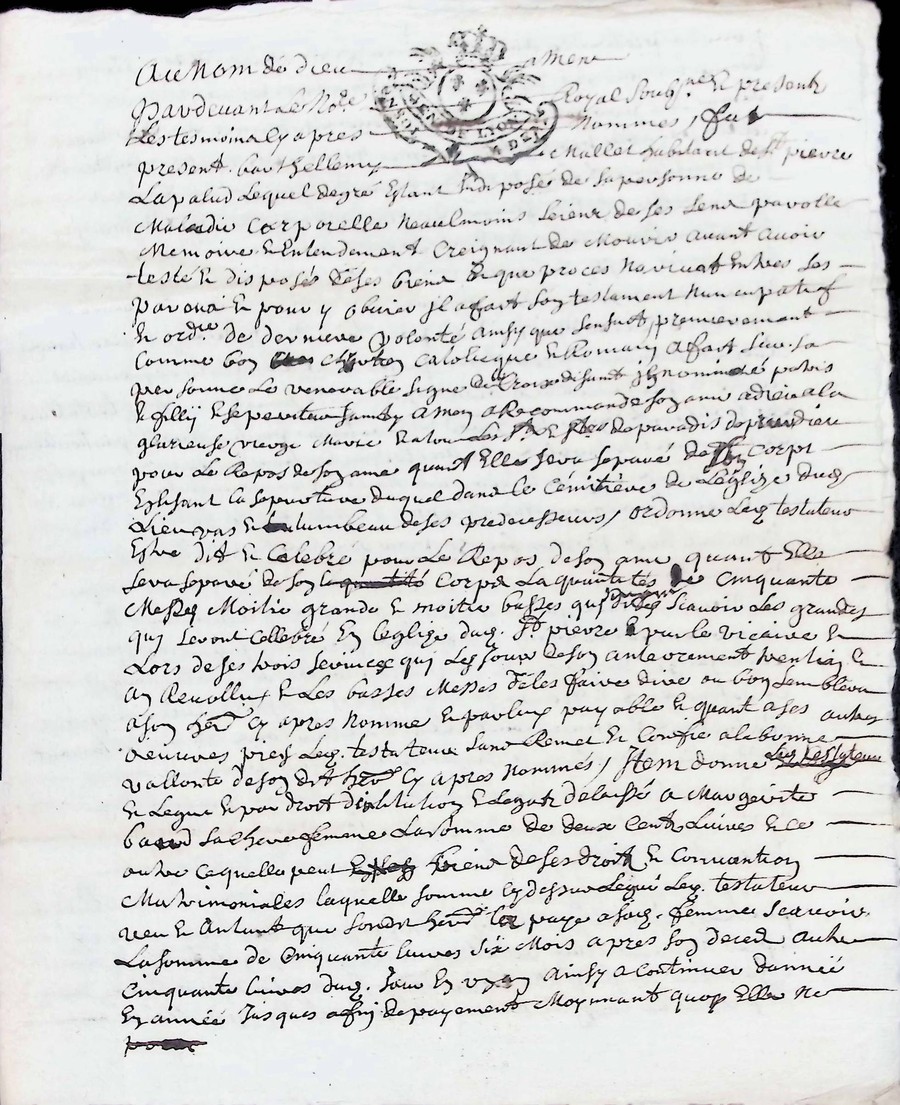 Au Nom de dieu amen
Pardevant le No.re Royal soubs.né & presents
Les tesmoins cy apres nommes / fut
present barthellemy Mallet habitant de S.t pierre
Lapalud Lequel de gré Estant Indisposé de sa personne de
Maladie Corporelle neaulmoins sieur de ses sens parolle
Memoire & Entendement Creignant de Mourir avant avoir
testé & disposés de ses biens & que proces n'arivat Entres ses
parans & pour y obvier Il a fait son testament nuncupatif
& ord.re de derniere volonté Ainsy que sensuit premierement
Comme bon Chretien Catolicque & Romain a fait sur sa
personne Le venerable signe de la Croix disant In nomine patris
& fillij & speritus santy Amen a Recommandé son ame a dieu a la
glorieuse vierge Marie & a tous Les S.ts & de paradis
pour Le Repos de son ame quant Elle sera separé de son Corps
Eslisant la sepulture duquel dans le Cemitiere de Leglize dud.
Lieu au tumbeau de ses predecesseurs / ordonne Led. testateur
Estre dit & Celebré pour Le Repos de son ame quant Elle
sera separé de son Corps La quantités de Cinquante
Messes Moitié grande & moitié basses Scavoir Les grandes
quy seront Cellebré En leglize dud. S.t pierre & par le vicaire &
Lors de ses trois services quy Les jours de son anterrement trentin &
An Revollu & Les basses Messes de les faire dire ou bon semblera
a son her. Cy apres Nomme & par luy payable & quant a ses autres
oeuvres pies Led. testateur sans Remet & Confie a la bonne
vallonte de son dit her. Cy apres Nommés / Item donne Led. testateur
& Legue & par droit dinstitution & Legat delaissé a Margerite
sa Chere femme La somme de deux Cents Livres & ce
outre Ce quelle peut avoir de ses droits & Convantion
Matrimoniales laquelle somme Cy dessus Legué Led. testateur
veu & Antant que sondit her. la paye a sad. femme Scavoir
La somme de Cinquante livres six Mois apres son deced autre
Cinquante livres dud. Jour En un an Ainsy a Continuer d'année
En année Jusques a fin de payement Moyenant quoy Elle ne